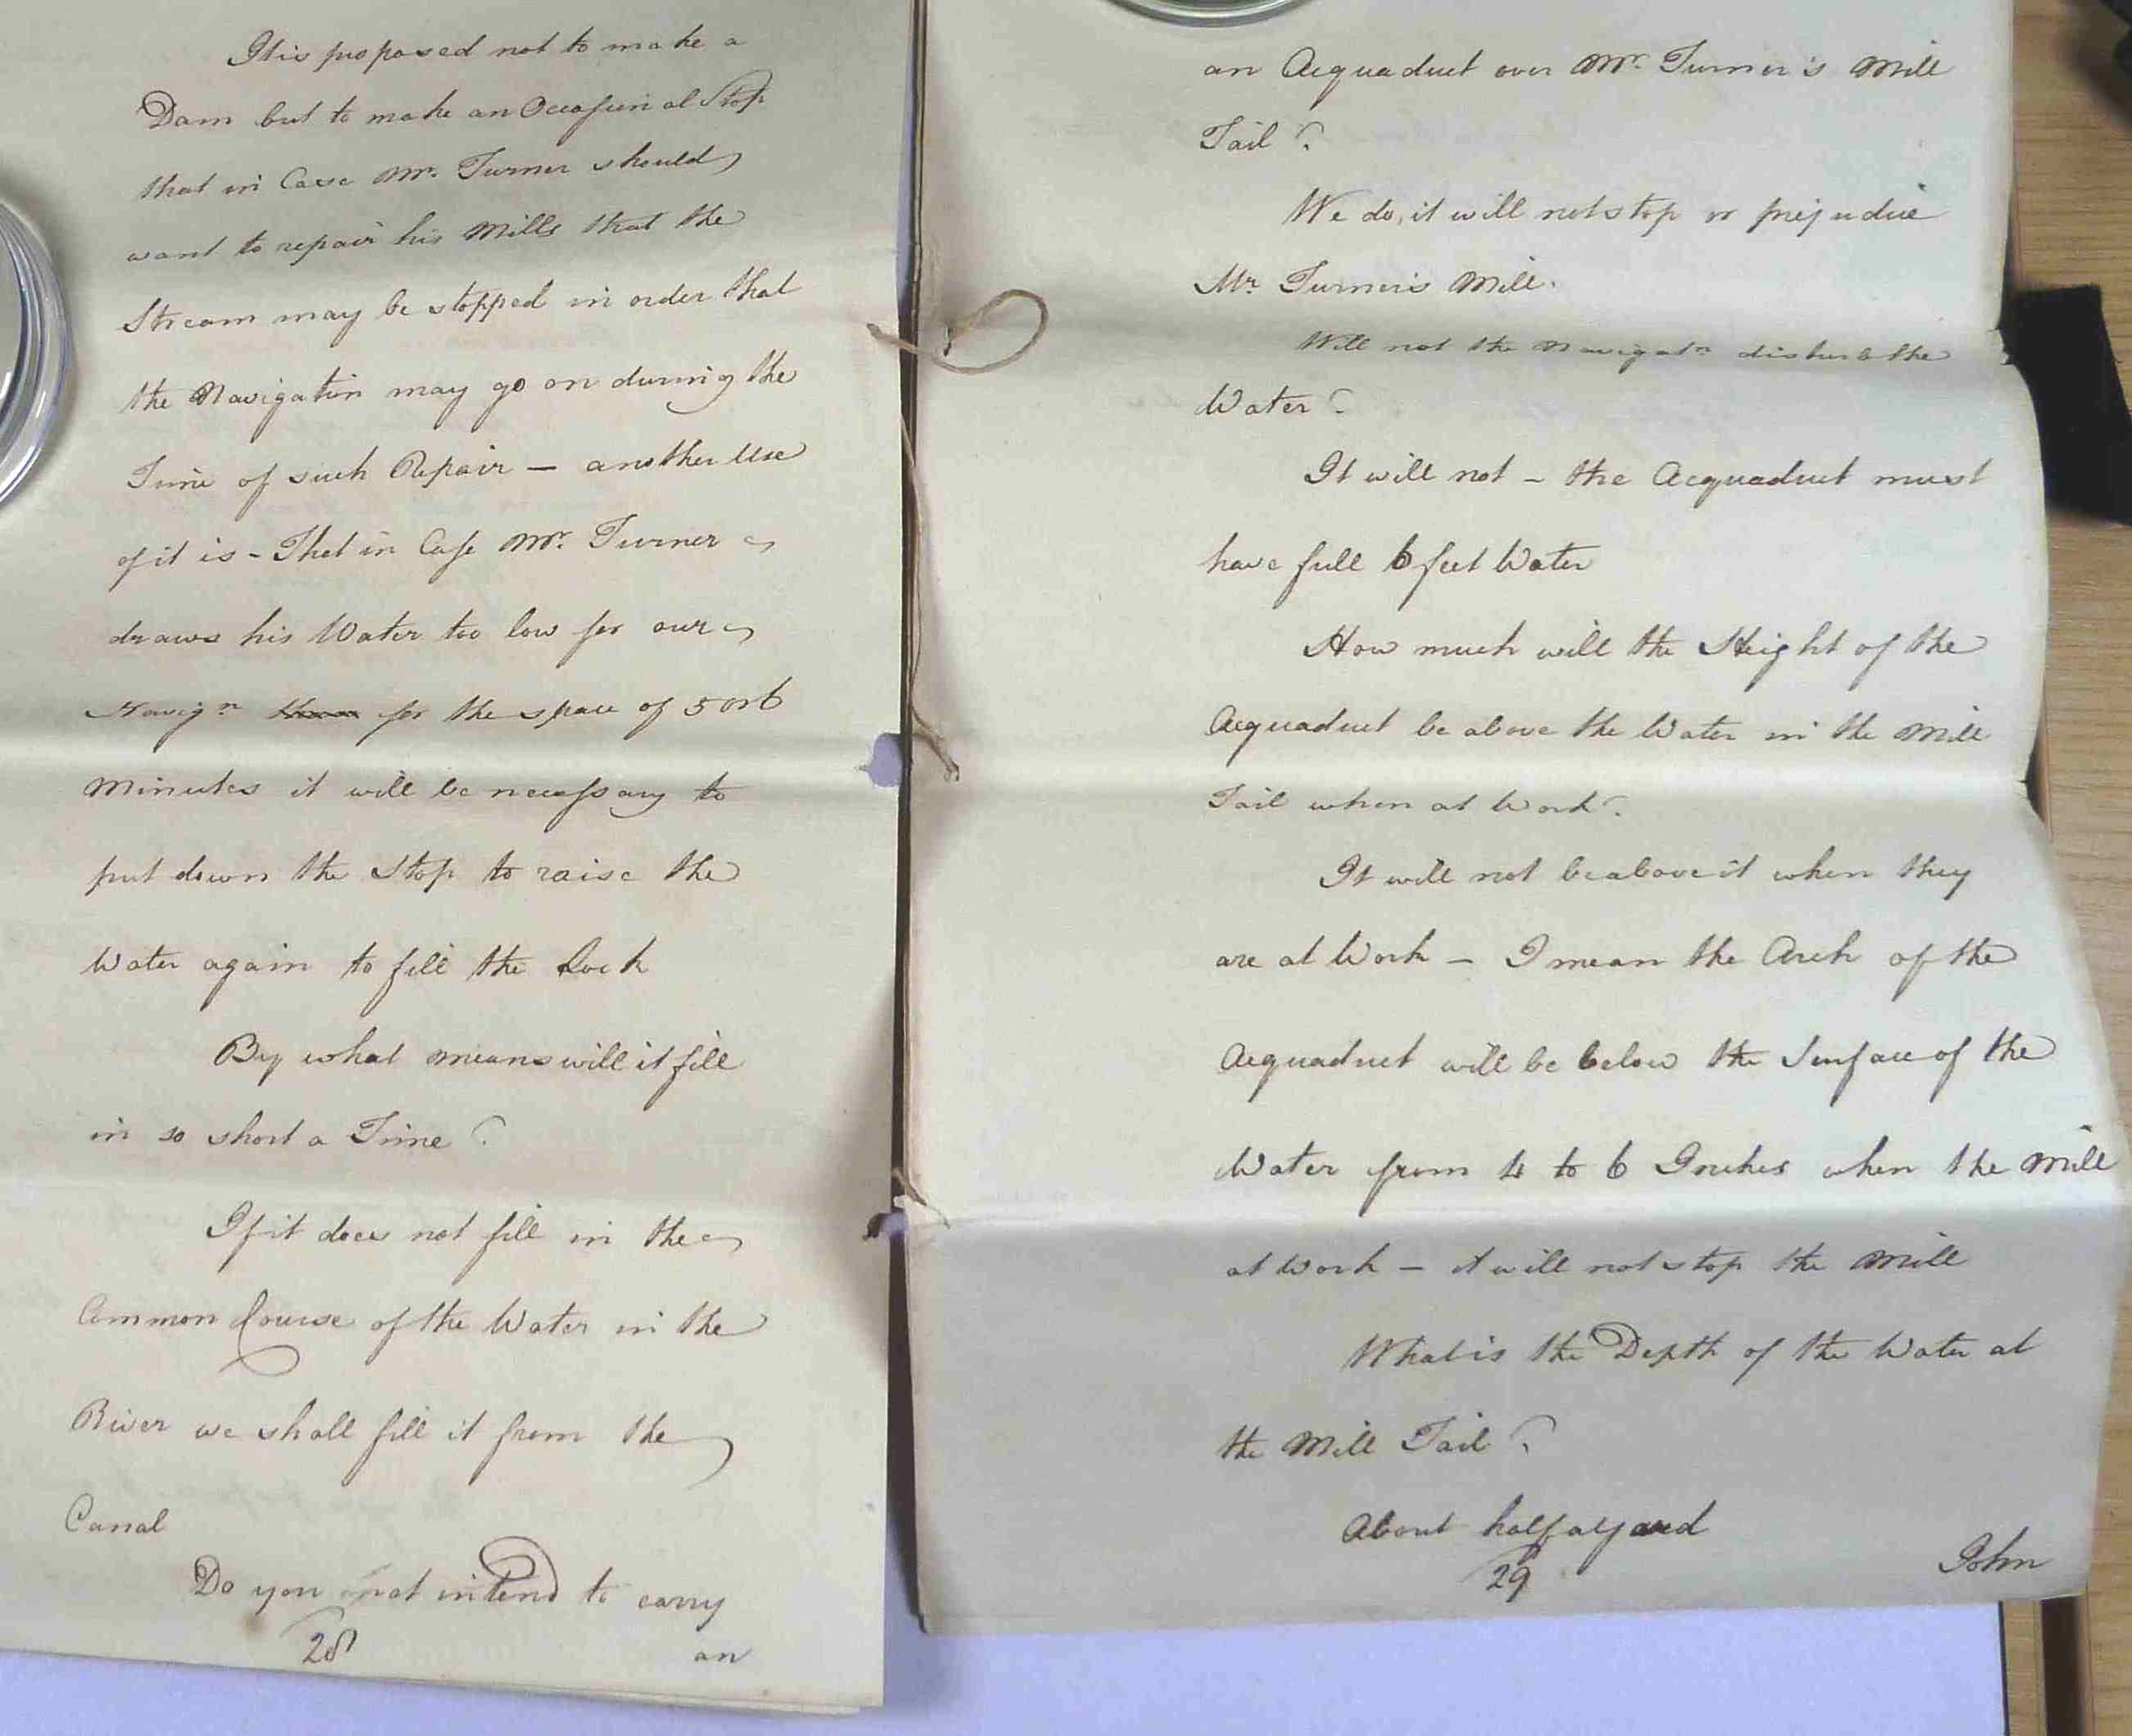 It is proposed not to make a
Dam but to make an Occasional Stop
that in Case Mr. Turner should
want to repair his Mills that the
Stream may be stopped in order that
the Navigation may go on during the
Time of such Repair — another Use
of it is - That in Case Mr. Turner
draws his Water too low for our
Navign for the space of 5 or 6
Minutes it will be necessary to
put down the Stop to raise the
Water again to fill the Lock
By what means will it fill
in so short a Time?
If it does not fill in the
Common Course of the Water in the
River we shall fill it from the
Canal
Do you not intend to carry
28
an
an Acquaduct over Mr. Turner's Mill
Tail?
We do, it will not stop or prejudice
Mr. Turner's Mill.
Will not the Navigatn disturb the
Water?
It will not - the Acquaduct must
have full 6 feet Water
How much will the Height of the
Acquaduct be above the Water in the Mill
Tail when at Work?
It will not be above it when they
are at Work — I mean the Arch of the
Acquaduct will be below the Surface of the
Water from 4 to 6 Inches when the Mill
at Work — it will not stop the Mill
What is the Depth of the Water at
the Mill Tail?
About half a yard
29
John